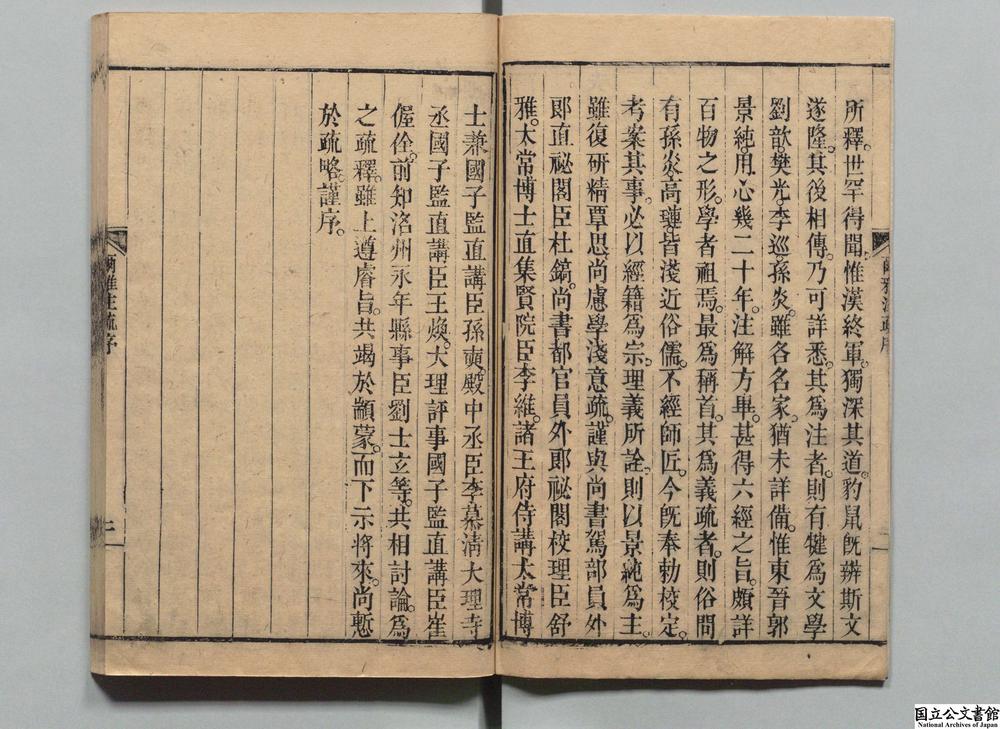 所釋。世罕得聞。惟漢終軍。獨深其道。豹鼠旣辨。斯文
遂隆。其後相傳。乃可詳悉。其爲注者。則有犍爲文學
劉歆。樊光。李巡。孫炎。雖各名家。猶未詳備。惟東晉郭
景純。用心幾二十年。注解方畢。甚得六經之旨。頗詳
百物之形。學者祖焉。最爲稱首。其爲義疏者。則俗間
有孫炎高璉。皆淺近俗儒。不經師匠。今旣奉勅校定。
考案其事。必以經籍爲宗。理義所詮。則以景純爲主。
雖復研精覃思。尚慮學淺意疏。謹與尚書駕部員外
郎直祕閣臣杜鎬。尚書都官員外郎祕閣校理臣舒
雅。太常博士直集賢院臣李維。諸王府侍講太常博
士兼國子監直講臣孫奭。殿中丞臣李慕淸。大理寺
丞國子監直講臣王煥。大理評事國子監直講臣崔
偓佺。前知洺州永年縣事臣劉士玄等。共相討論。爲
之疏釋。雖上遵睿旨。共竭於顓蒙。而下示將來。尚慙
於疏略。謹序。
爾雅注疏序
二
国立公文書館
National Archives of Japan